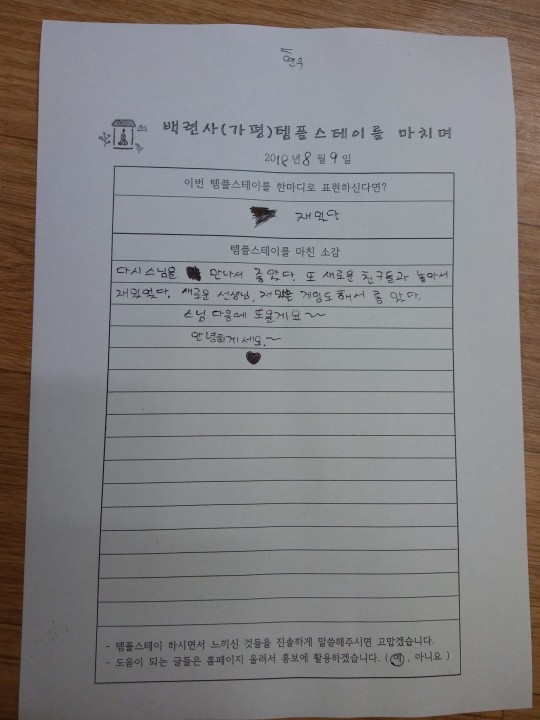 연우
백련사(가평)템플스테이를 마치며
2018년 8월 9일
이번 템플스테이를 한마디로 표현하신다면?
재밌다
템플스테이를 마친 소감
다시 스님을 만나서 좋았다. 또 새로운 친구들과 놀아서
재밌었다. 새로운 선생님, 재밌는 게임도 해서 좋았다.
스님 다음에 또올게요~
안녕하게세요.~
- 템플스테이 하시면서 느끼신 것들을 진솔하게 말씀해주시면 고맙겠습니다.
- 도움이 되는 글들은 홈페이지 올려서 홍보에 활용하겠습니다. ( 예 , 아니요 )